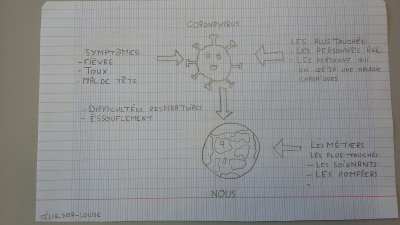 CORONAVIRUS
SYMPTÔMES
- FIÈVRE
- TOUX
- MAL DE TÊTE
LES PLUS TOUCHÉS
- LES PERSONNES AGÉ
- LES PERSONNE QUI
ON DÉJÀ UNE MALADIE
CHRONIQUES
- DIFFICULTÉES RESPIRATOIRES
- ESSOUFLEMENT
LES MÉTIERS
LES PLUS TOUCHÉS
- LES SOIGNANTS
- LES POMPIERS
-
NOUS
CÉLIE NOE-LOUISE